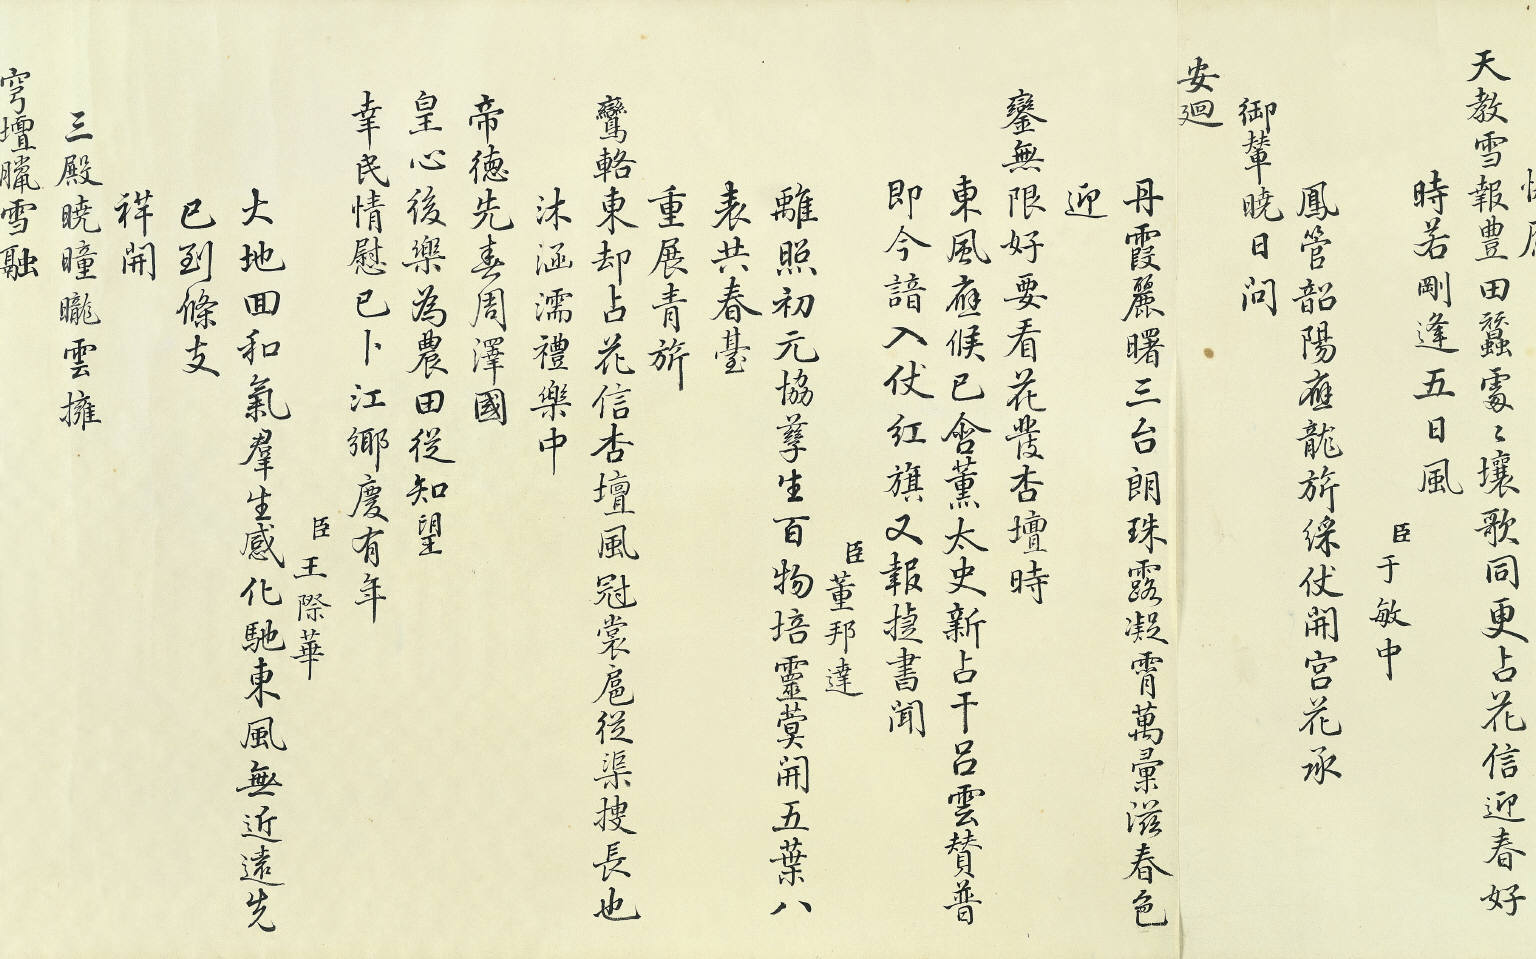 天教雪報豊田蠶處〻壤歌同更占花信迎春好
時若剛逢五日風
臣于敏中
鳳管韶陽應龍旂綵仗開宫花承
御輦曉日问
安廻
丹霞麗曙三台朗珠露凝霄萬彙滋春色
迎
鑾無限好要看花發杏壇時
東風應候已含薰太史新占干呂雲賛普
即今諳入仗紅旗又報捷書聞
臣董邦達
離照初元協孳生百物培靈蓂開五葉八
表共春臺
重展青旂
鸞輅東却占花信杏壇風冠裳扈從渠搜長也
沐涵濡禮樂中
帝德先春周澤國
皇心後樂為農田從知望
幸民情慰已卜江鄉慶有年
臣王際華
大地回和氣羣生感化馳東風無近遠先
已到條支
祥開
三殿曉曈曨雲擁
穹壇臘雪融